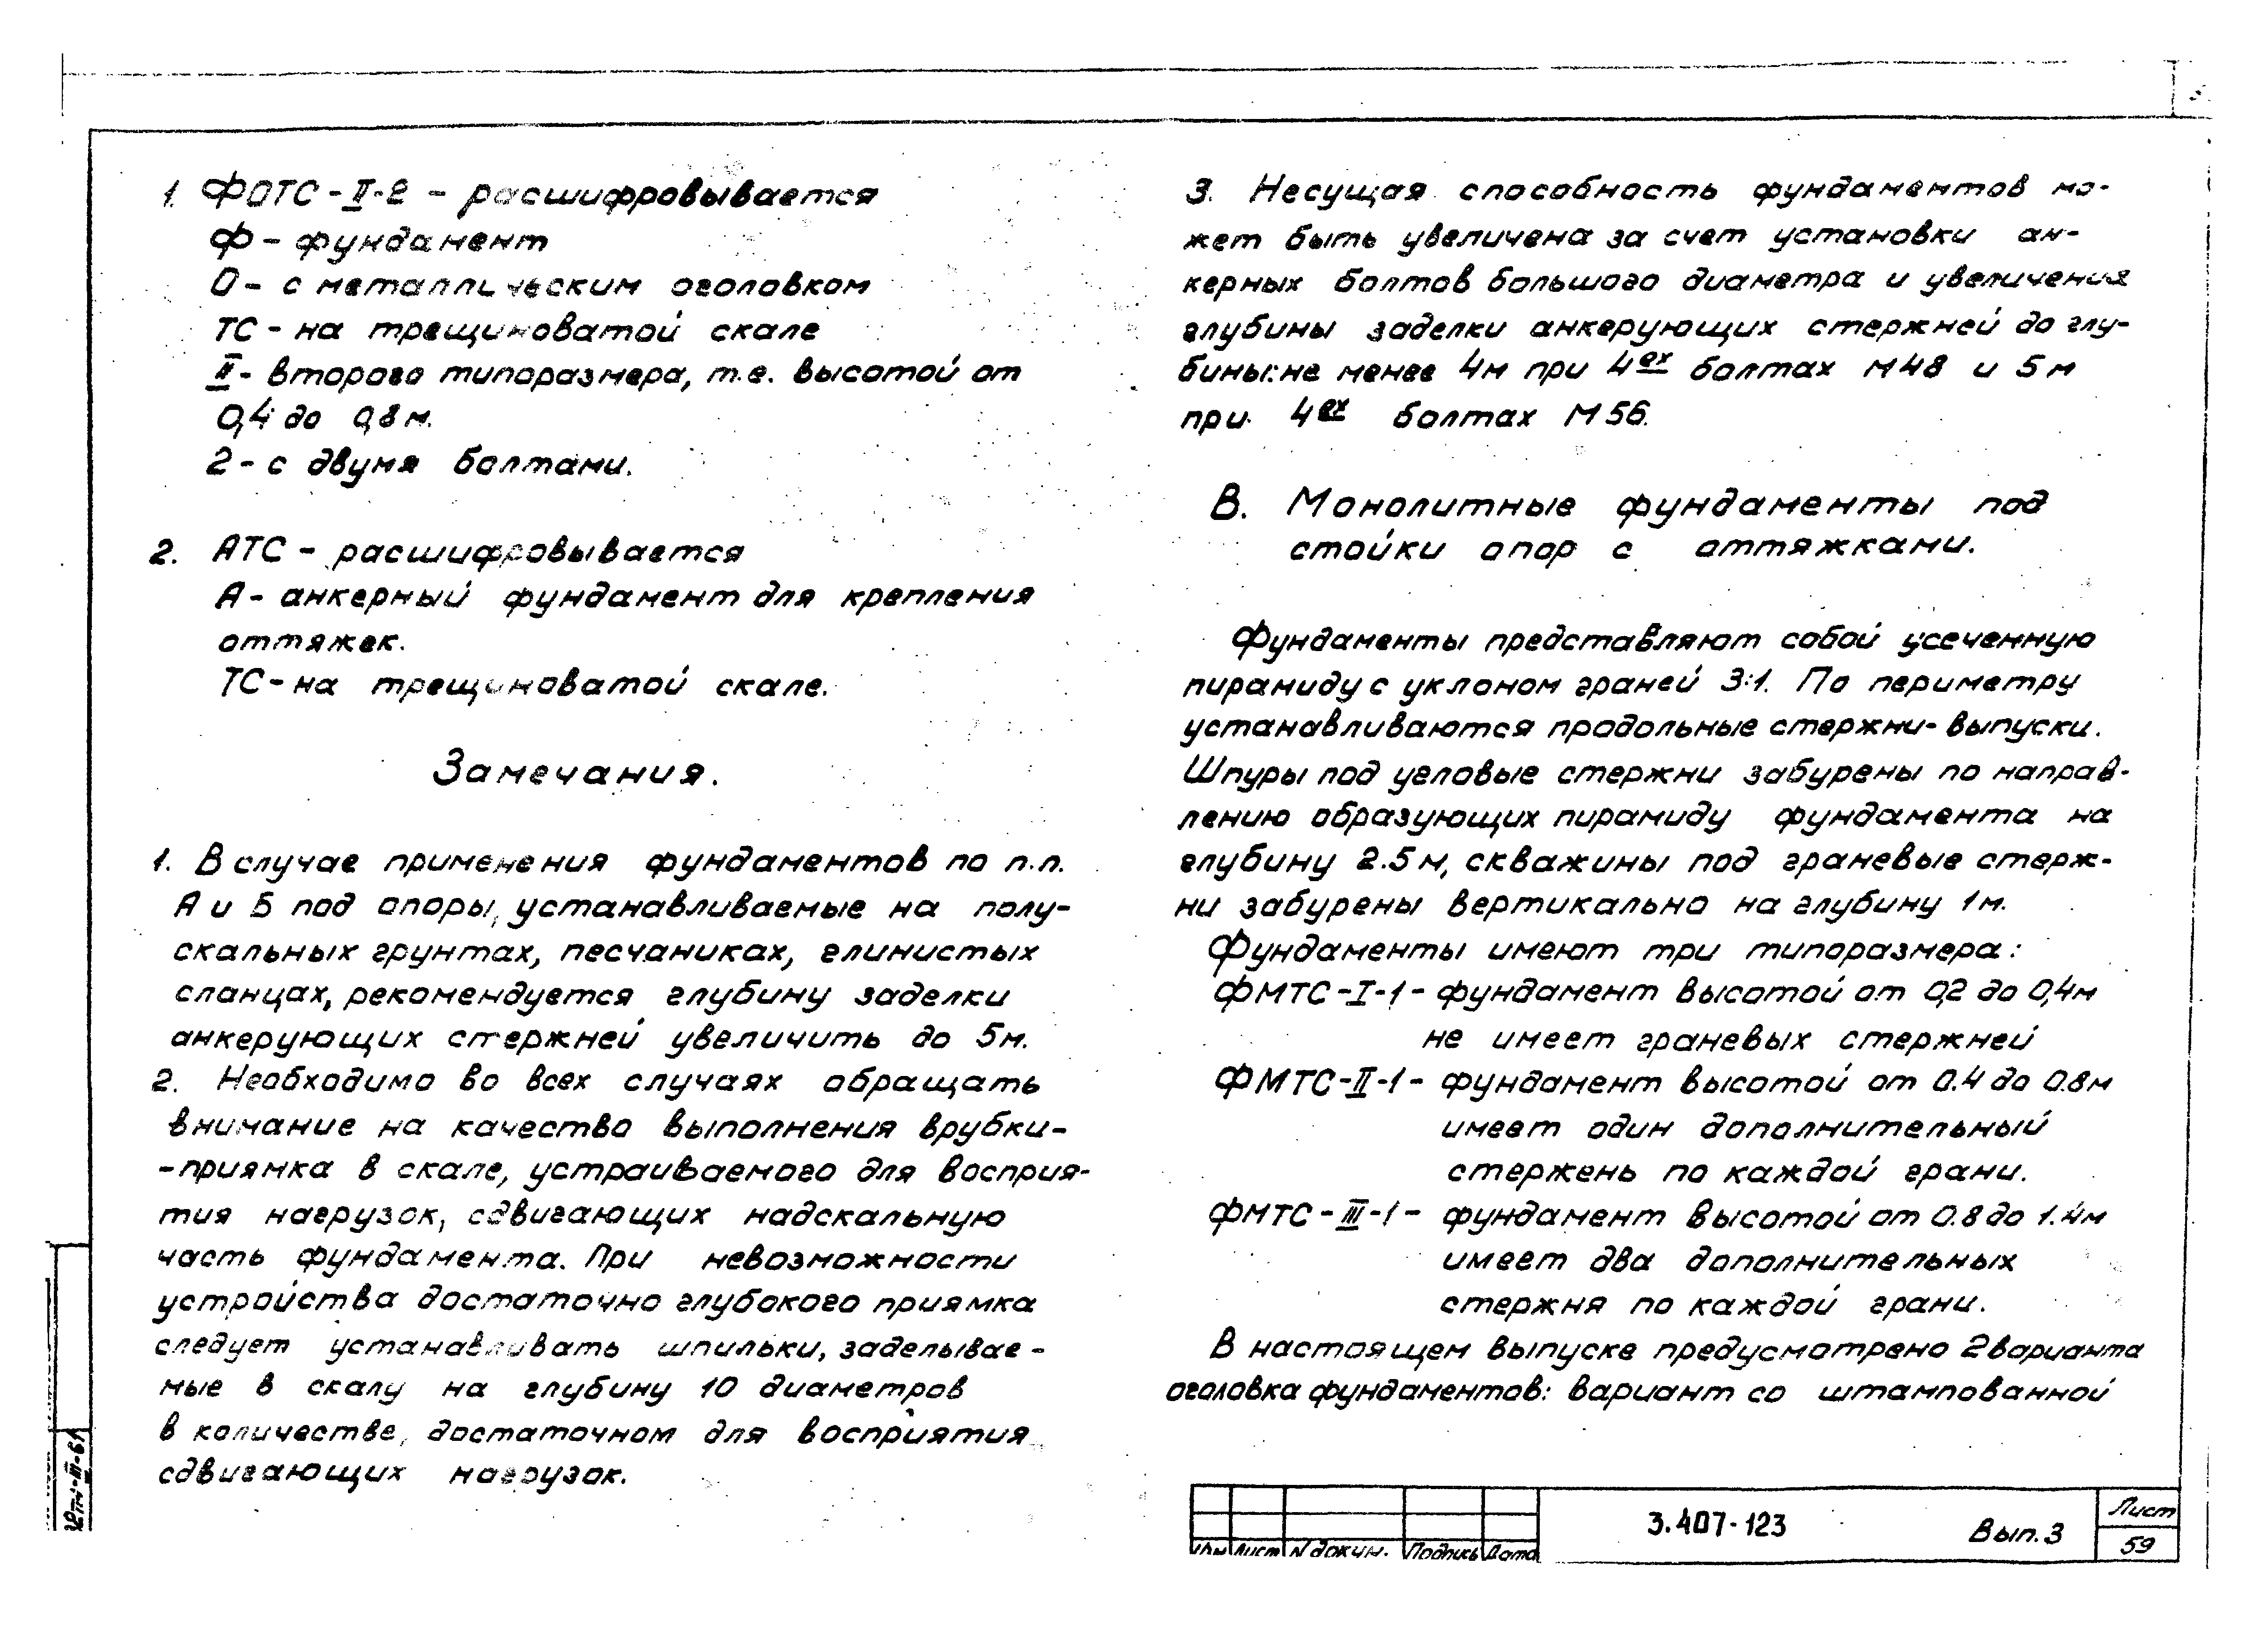 1. ФОТС-II-2 - расшифровывается
Ф - фундамент
О - с металлическим оголовком
ТС - на трещиноватой скале
II - второго типоразмера, т.е. высотой от
0,4 до 0,8 м.
2 - с двумя болтами.
2. АТС - расшифровывается
А - анкерный фундамент для крепления
оттяжек.
ТС - на трещиноватой скале.
Замечания.
1. В случае применения фундаментов по п.п.
А и Б под опоры, устанавливаемые на полу-
скальных грунтах, песчаниках, глинистых
сланцах, рекомендуется глубину заделки
анкерующих стержней увеличить до 5м.
2. Необходимо во всех случаях обращать
внимание на качество выполнения врубки-
-приямка в скале, устраиваемого для восприя-
тия нагрузок, сдвигающих надскальную
часть фундамента. При невозможности
устройства достаточно глубокого приямка
следует устанавливать шпильки, заделывае-
мые в скалу на глубину 10 диаметров
в количестве, достаточном для восприятия
сдвигающих нагрузок.
3. Несущая способность фундаментов мо-
жет быть увеличена за счет установки ан-
керных болтов большого диаметра и увеличения
глубины заделки анкерующих стержней до глу-
бины: не менее 4м при 4ех болтах М48 и 5м
при 4ех болтах М56.
В. Монолитные фундаменты под
стойки опор с оттяжками.
Фундаменты представляют собой усеченную
пирамиду с уклоном граней 3:1. По периметру
устанавливаются продольные стержни-выпуски.
Шпуры под угловые стержни забурены по направ-
лению образующих пирамиду фундамента на
глубину 2.5м, скважины под граневые стерж-
ни забурены вертикально на глубину 1м.
Фундаменты имеют три типоразмера:
ФМТС-I-1 - фундамент высотой от 0,2 до 0,4м
не имеет граневых стержней
ФМТС-II-1 - фундамент высотой от 0.4 до 0.8м
имеет один дополнительный
стержень по каждой грани.
ФМТС-III-1 - фундамент высотой от 0.8 до 1.4м
имеет два дополнительных
стержня по каждой грани.
В настоящем выпуске предусмотрено 2 варианта
оголовка фундаментов: вариант со штампованной
Лист N докум. Подпись Дата
3.407-123 Вып.3
Лист
59